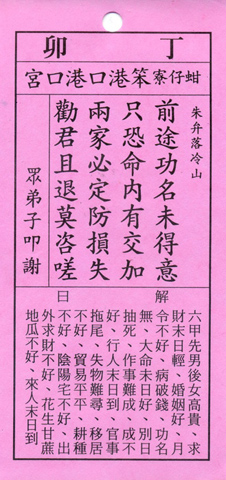 丁卯
蚶仔寮笨港口港口宮
朱弁落冷山
前途功名未得意
只恐命內有交加
兩家必定防損失
勸君且退莫咨嗟
眾弟子叩謝
解曰
六甲先男後女高貴、求
財末日輕、婚姻好、月
令不好、病破錢、功名
無、大命末日好、別日
抽死、作事難成、成不
好、行人末日到、官事
拖尾、失物難尋、移居
不好、貿易平平、耕種
不好、陰陽宅不好、出
外求財不好、花生甘蔗
地瓜不好、來人末日到